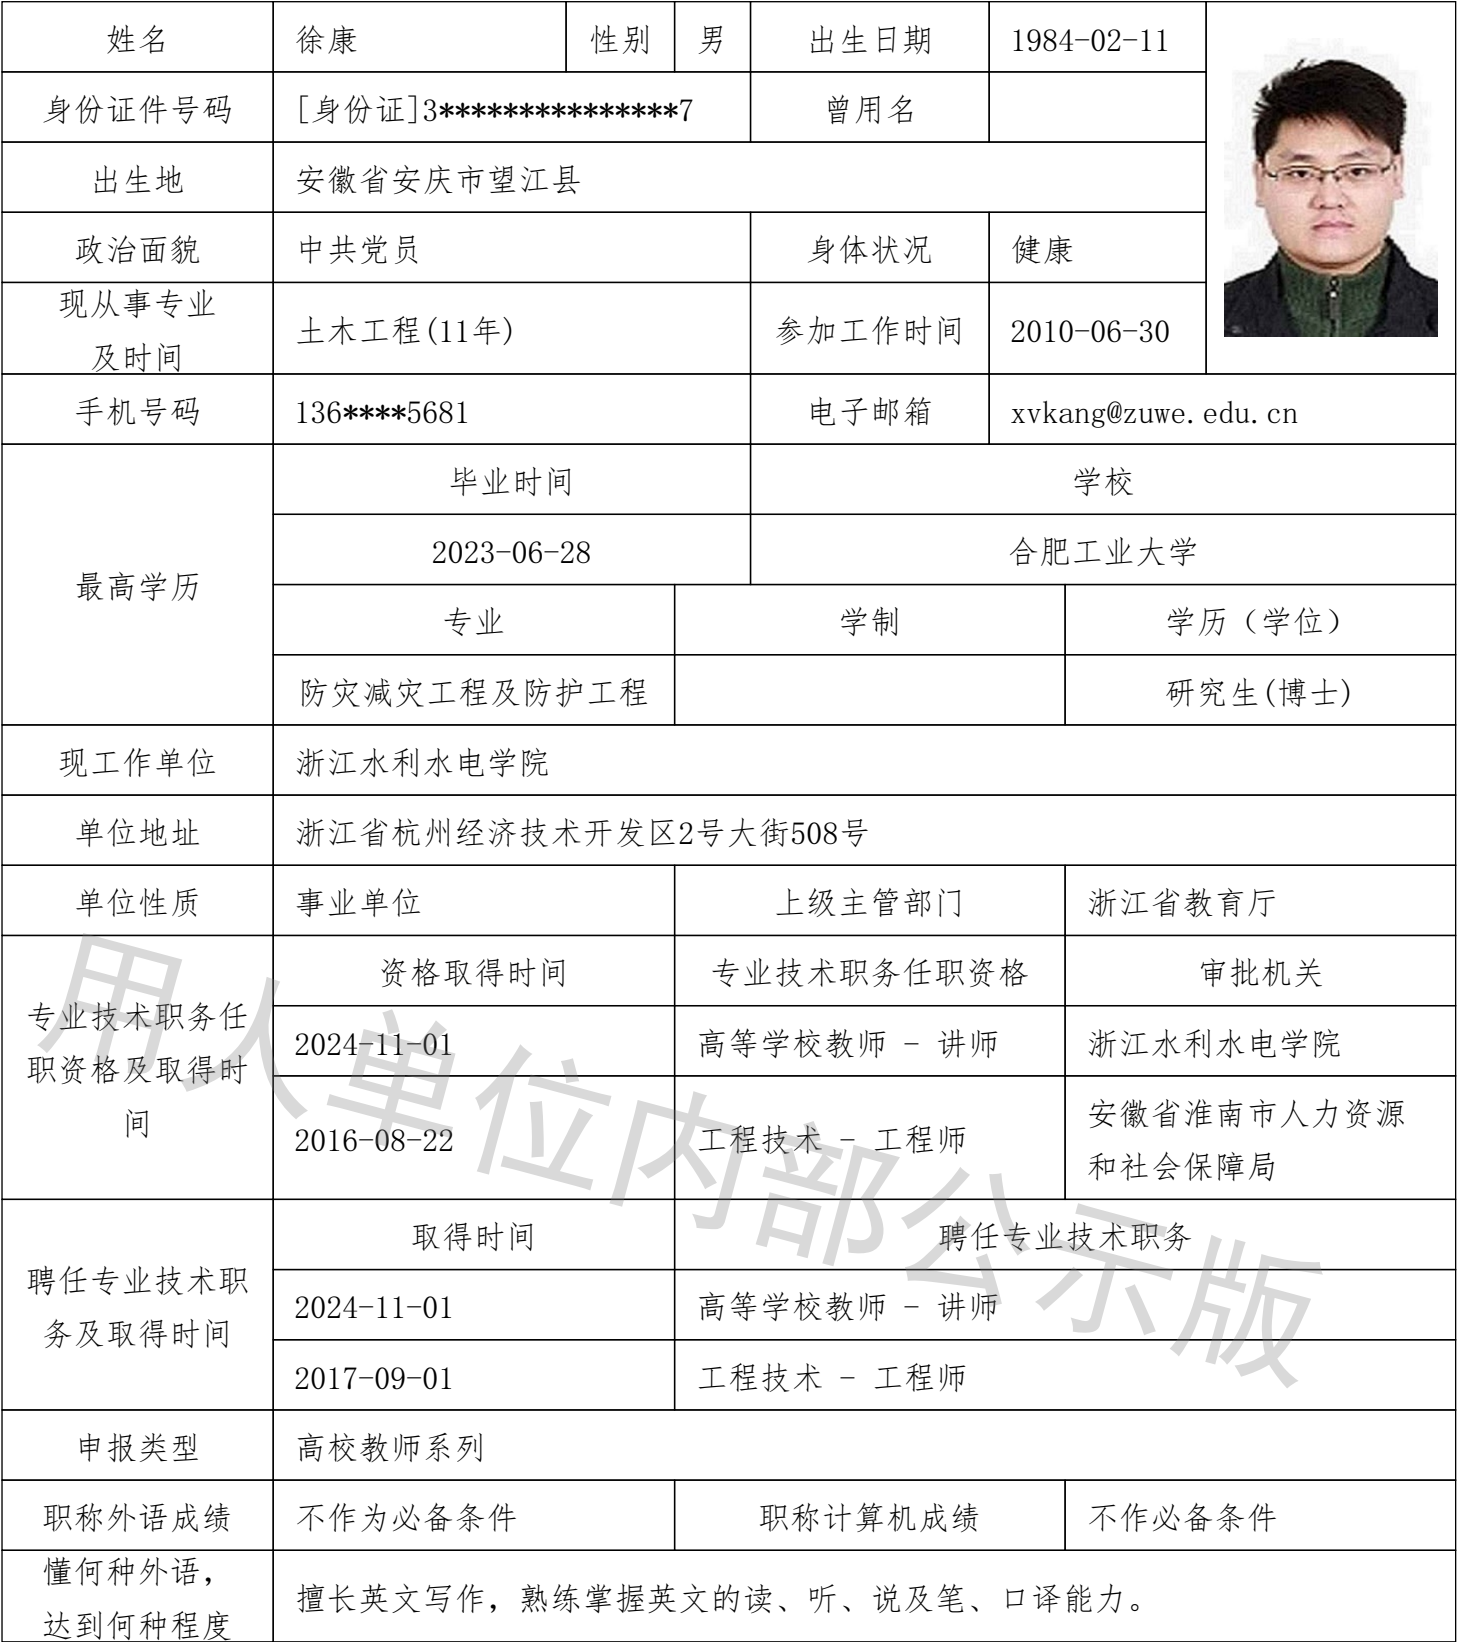 姓名 徐康 性别 男 出生日期 1984-02-11
身份证件号码 [身份证]3***************7 曾用名
出生地 安徽省安庆市望江县
政治面貌 中共党员 身体状况 健康
现从事专业
及时间
土木工程(11年) 参加工作时间 2010-06-30
手机号码 136****5681 电子邮箱 xvkang@zuwe.edu.cn
最高学历
毕业时间 学校
2023-06-28 合肥工业大学
专业 学制 学历（学位）
防灾减灾工程及防护工程 研究生(博士)
现工作单位 浙江水利水电学院
单位地址 浙江省杭州经济技术开发区2号大街508号
单位性质 事业单位 上级主管部门 浙江省教育厅
专业技术职务任
职资格及取得时
间
资格取得时间 专业技术职务任职资格 审批机关
2024-11-01 高等学校教师 - 讲师 浙江水利水电学院
2016-08-22 工程技术 - 工程师 安徽省淮南市人力资源
和社会保障局
聘任专业技术职
务及取得时间
取得时间 聘任专业技术职务
2024-11-01 高等学校教师 - 讲师
2017-09-01 工程技术 - 工程师
申报类型 高校教师系列
职称外语成绩 不作为必备条件 职称计算机成绩 不作必备条件
懂何种外语，
达到何种程度
擅长英文写作，熟练掌握英文的读、听、说及笔、口译能力。
用人单位内部公示版